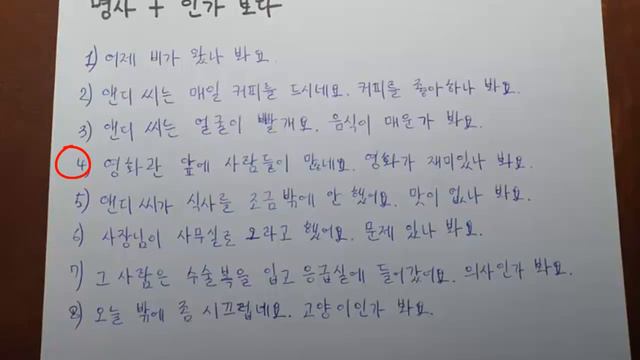 명사 + 인가 보다
1) 어제 비가 왔나 봐요.
2) 앤디 씨는 매일 커피를 드시네요. 커피를 좋아하나 봐요.
3) 앤디 씨는 얼굴이 빨개요. 음식이 매운가 봐요.
4) 영화관 앞에 사람들이 많네요. 영화가 재미있나 봐요.
5) 앤디 씨가 식사를 조금밖에 안 했어요. 맛이 없나 봐요.
6) 사장님이 사무실로 오라고 했어요. 문제 있나 봐요.
7) 그 사람은 수술복을 입고 응급실에 들어갔어요. 의사인가 봐요.
8) 오늘 밖에 좀 시끄럽네요. 고양이인가 봐요.